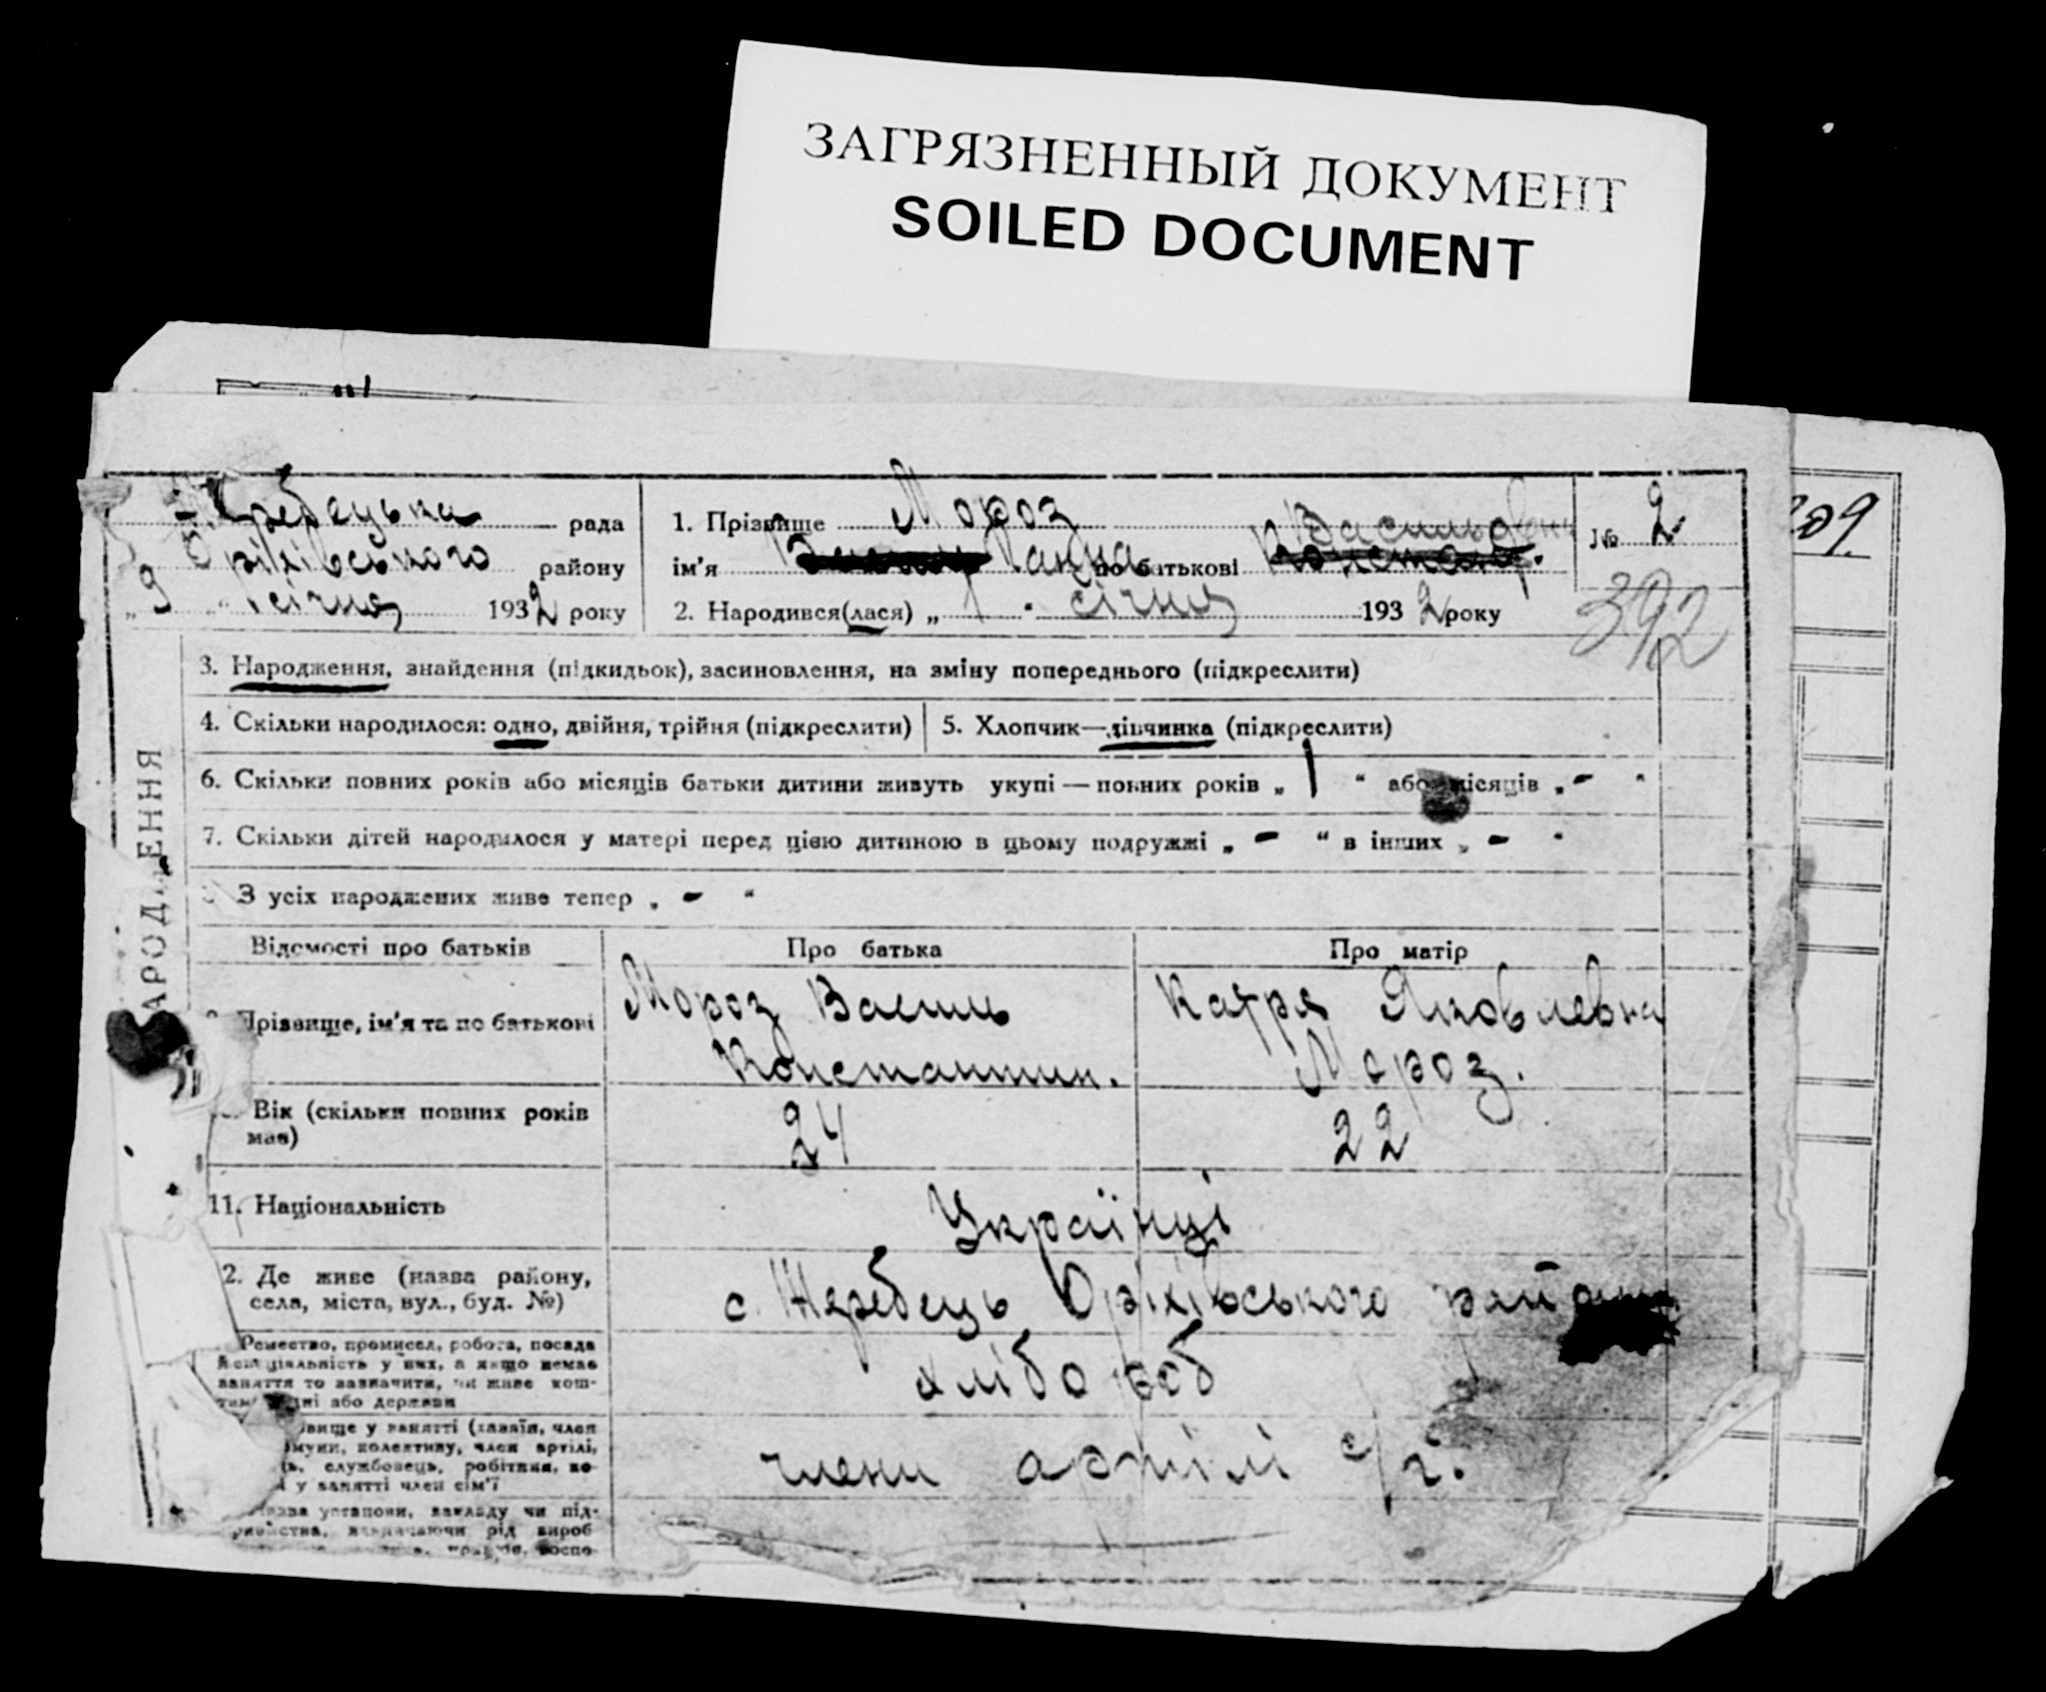 ЗАГРЯЗНЕННЫЙ ДОКУМЕНТ
SOILED DOCUMENT
209.
Жеребецька рада
Оріхівського району
„9“ січня 1932 року
1. Прізвище Мороз
ім'я Ганна по батькові Констант. Васильевна
2. Народився(лася) „ “ січня 1932 року
№ 2.
392
АРОД ЕННЯ
3. Народження, знайдення (підкидьок), засиновлення, на зміну попереднього (підкреслити)
4. Скільки народилося: одно, двійня, трійня (підкреслити)
5. Хлопчик—дівчинка (підкреслити)
6. Скільки повних років або місяців батьки дитини живуть укупі — повних років „ 1 “ або місяців „ - “
7. Скільки дітей народилося у матері перед цією дитиною в цьому подружжі „ - “ в інших „ - “
З усіх народжених живе тепер „ - “
Відомості про батьків
Про батька
Про матір
Прізвище, ім'я та по батькові
Мороз Василь
Константин.
Катря Яковлевна
Мороз.
Вік (скільки повних років
має)
24
22
11. Національність
Українці
2. Де живе (назва району,
села, міста, вул., буд. №)
с. Жеребець Оріхівського району
Ремество, промисел, робота, посада
й спеціальність у них, а якщо немає
заняття то зазначити, чи живе кош-
або держави
хлібороб
вище у занятті (хазяїн, член
муни, колективу, член артілі,
службовець, робітник, по-
у занятті член сім'ї
члени артілі с/г.
назва установи, закладу чи під-
приємства, зазначаючи рід вироб